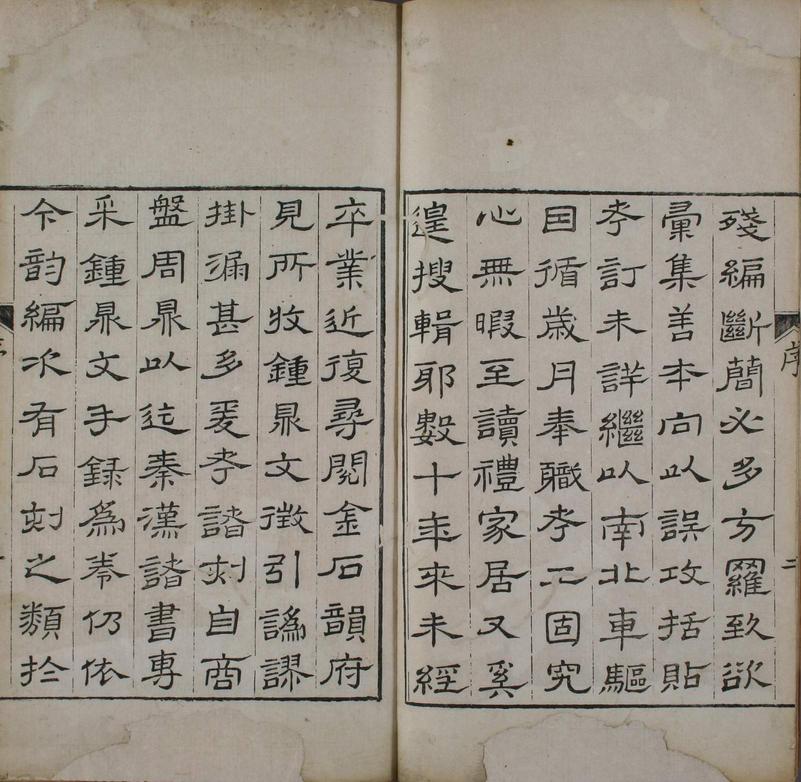 序
二
殘編斷簡必多方羅致欲
彙集善本向以誤攻括貼
考訂未詳繼以南北車驅
因循歲月奉職考工固究
心無暇至讀禮家居又奚
遑搜輯耶數十年來未經
卒業近復尋閱金石韻府
見所收鍾鼎文徵引譌謬
掛漏甚多爰考諸刻自商
盤周鼎以迄秦漢諸書專
采鍾鼎文手錄爲卷仍依
今韵編次有石刻之類於